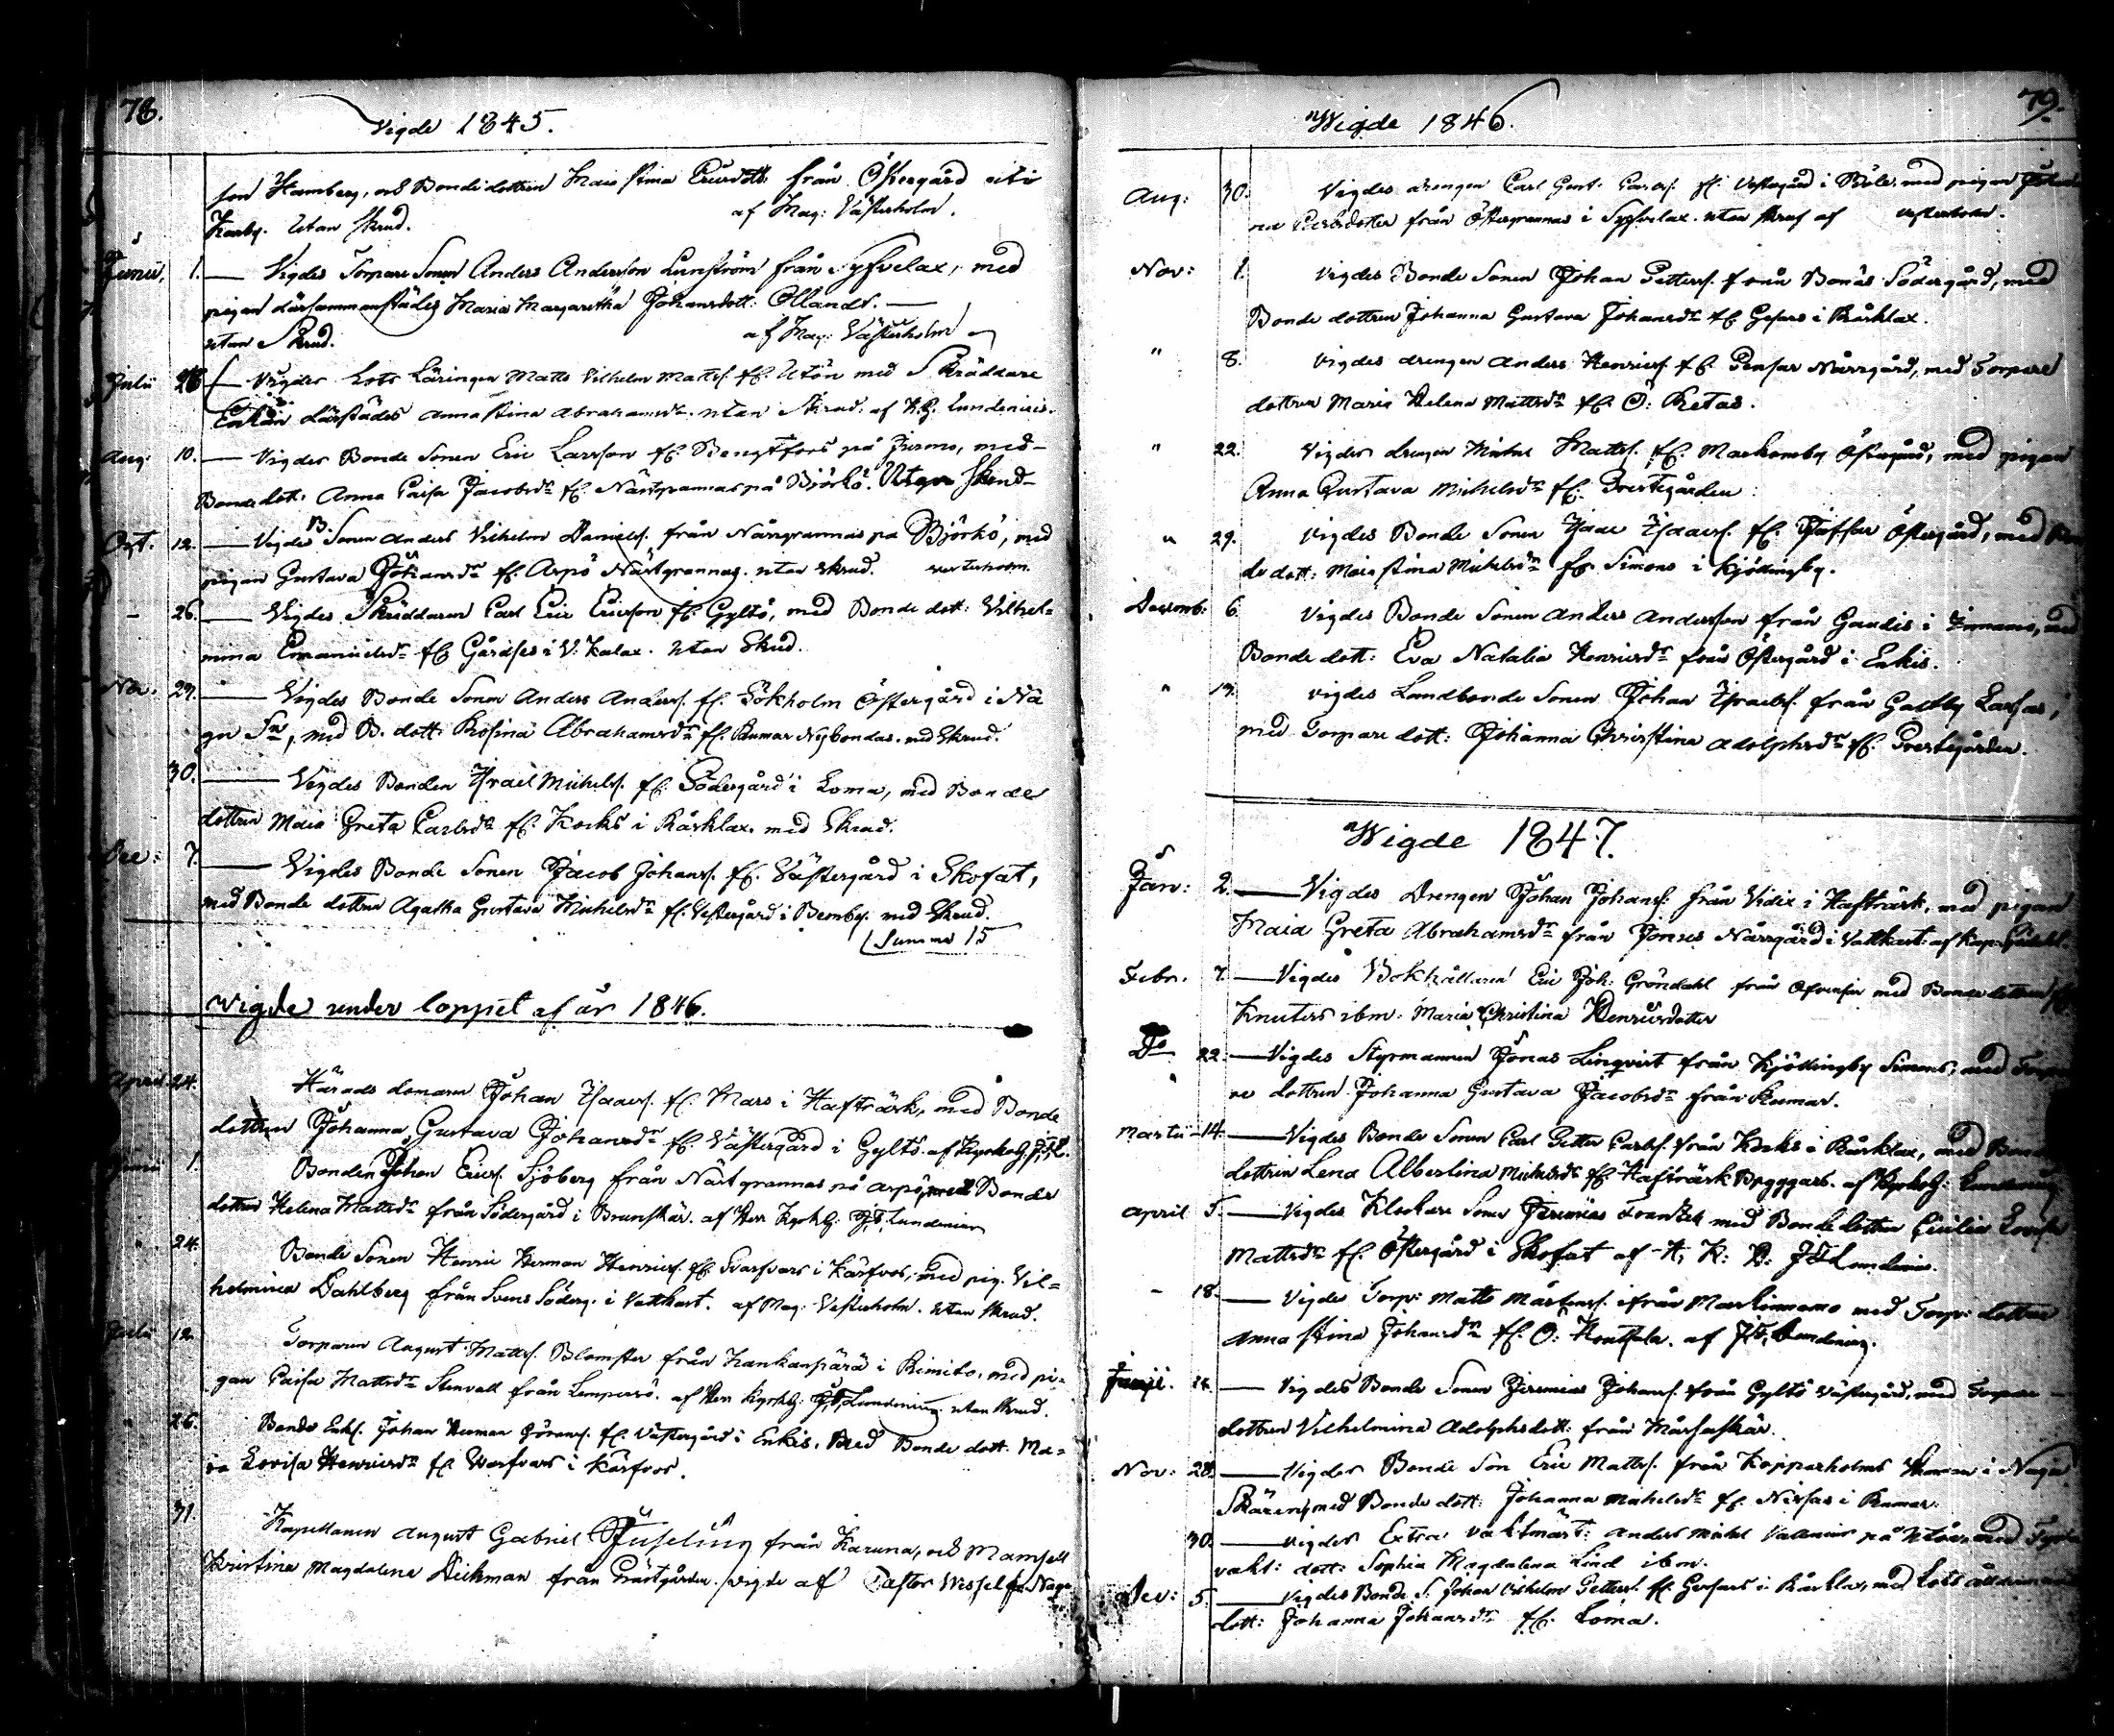 78.
Vigde 1845.
son Hamberg, och Bonde dottren Maia Stina Ericsdott: från Östergård uti
Korby. Utan skrud. af Mag: Västerholm.
Junii, 1. Vigdes Torpare Sonen Anders Andersson Lunström från Syfvelax, med
pigan därsammanstädes Maria Margaretha Johansdott: Ollandt.
utan Skrud. af Mag: Västerholm
Julii Vigdes Lots Läringen Matts Vilhelm Matts. fr. Utön med Skräddare
Enkan därstädes Anna Stina Abrahamsdr. utan Skrud. af Lundenius.
Aug: 10. Vigdes Bonde Sonen Eric Larsson fr. Bengtsfors på Jurmo, med
Bonde dott: Anna Caisa Jacobsdr fr. Norrgrannas på Björkö. Utan Skrud
Oct. 12. Vigdes B. Sonen Anders Vilhelm Daniels. från Norrgrannas på Björkö, med
pigan Gustava Johansdr fr. Aspö Norrgrannas. utan skrud. Westerholm.
- 26. Vigdes Skräddaren Carl Eric Ericsson fr. Gyltö, med Bonde dott: Vilhel=
mina Emanuelsdr fr Gårdses i V: Kalax. utan Skrud.
Nov: 29. Vigdes Bonde Sonen Anders Anders. fr. Sökholm Östergård i Na
gu Sn, med B. dott: Rosina Abrahamsdr fr. Rumar Nybondas. med Skrud.
30. Vigdes Bonden Israel Michels. fr. Södergård i Loma, med Bonde
dottren Maia Greta Carlsdr fr. Kocks i Kårklax. med Skrud.
Dec: 7. Vigdes Bonde Sonen Jacob Johans. fr. Västergård i Skofat,
med Bonde dottren Agatha Gustava Michelsdr fr. Vestergård i Bemby. med Skrud.
Summa 15
Vigde under loppet af år 1846.
April 24. Härads domaren Johan Isacs. fr. Mars i Hafträsk, med Bonde
dottren Johanna Gustava Johansdr fr. Västergård i Gyltö. af Kyrkohg. J.T.L.
Junii 1. Bonden Johan Erics. Sjöberg från Norrgrannas på Aspö, med Bonde
dottren Helena Mattsdr från Södergård i Brunskär. af Herr Kyrkhg: J.T. Lundenius
" 24. Bonde Sonen Henric Herman Henrics. fr Svarfvars i Kärfvos, med pig. Vil=
helmina Dahlberg från Svens Söderg. i Vattkast. af Mag: Vesterholm. utan skrud.
Julii 12. Torparen August Matts. Blomster från Hankanpärä i Rimito, med pi=
gan Caisa Mattsdr Stenvall från Lempersö. af Herr Kyrkhg: J.T. Lundenius utan skrud.
" 26. Bonde Enkl. Johan Herman Görans. fr. Västergård i Enkis, med Bonde dott: Ma=
ia Lovisa Henricsdr fr Svarfvars i Kärfvos.
31. Kapellanen August Gabriel Juselius från Karuna, och Mamsell
Kristina Magdalena Dickman från Prästgården. vigde af Pastor Wessel fr. Nagu
79.
Wigde 1846.
Aug: 30. Vigdes drengen Carl Gust. Carls. fr. Vestergård i Böle. med pigan
na Carlsdotter från Östergrannas i Syfvelax. utan skrud af Westerholm.
Nov: 1. Vigdes Bonde Sonen Johan Petters. från Bonäs Södergård, med
Bonde dottren Johanna Gustava Johansdr fr Gesars i Kårklax.
" 8. Vigdes drengen Anders Henrics. fr Pensar Norrgård, med Torpare
dottren Maria Helena Mattsdr fr. Ö: Retas.
" 22. Vigdes drengen Michel Matts. fr. Markomby Östergård, med pigan
Anna Gustava Michelsdr fr. Prestegården
" 29. Vigdes Bonde Sonen Isaac Isaacs. fr. Östergård, med Bon
de dott: Maia Stina Michelsdr fr. Simons i Kjödingby.
Decemb: 6. Vigdes Bonde Sonen Anders Andersson från Gaudis i Immans, med
Bonde dott: Eva Natalia Henricsdr från Östergård i Enkis.
" 19. Vigdes Landbonde Sonen Johan Israels. från Galtby Larsas,
med Torpare dott: Johanna Christina Adolphsdr fr. Prestegården.
Wigde 1847.
Jan: 2. Vigdes Drengen Johan Johans. från Vidix i Hafträsk, med pigan
Maia Greta Abrahamsdr från Jonses Norrgård i Vattkast: af Kap:
Febr. 7. Vigdes Bokhållaren Eric Joh: Gröndahl från Ofvensor med Bonde dottren
Knuters ibm: Maria Christina Henricsdotter
Do 22. Vigdes Styrmannen Jonas Linqvist från Kjödingby Simons, med Torpa
re dottren Johanna Gustava Jacobsdr från Rumar.
Martii 14. Vigdes Bonde Sonen Carl Petter Carls. från Kocks i Kårklax, med Bonde
dottren Lena Albertina Michelsdr fr. Hafträsk Byggars. af Kyrkohg: Lundenius
April 5. Vigdes Klockare Sonen Jeremias Frantzk med Bonde dottren Cecilia Lovisa
Mattsdr fr. Östergård i Skofat af H: K: H: J T Lundenius.
- 18. Vigdes Torp: Matts Mårtens. ifrån Markinnamo med Torp: dottren
Anna Stina Johansdr fr. Ö: Houtsala. af J.T. Lundenius.
Junii. Vigdes Bonde Sonen Jeremias Johans. från Gyltö Västergård, med Torpare
dottren Vilhelmina Adolphsdott: från Mårsaskär.
Nov: 28. Vigdes Bonde Son Eric Matts. från Kopparholms Hemman i Nagu
Skären, med Bonde dott: Johanna Michelsdr fr. Nissas i Rumar.
30. Vigdes Extra Vaktmäst: Anders Michel Vallenius på Utön, med Fyr
vakt: dott: Sophia Magdalena Lind ibm.
Dec: 5. Vigdes Bonde S. Johan Vilhelm Petters. fr. Gesars i Kårklax, med Lots ålderman
dott: Johanna Johansdr fr. Loma.